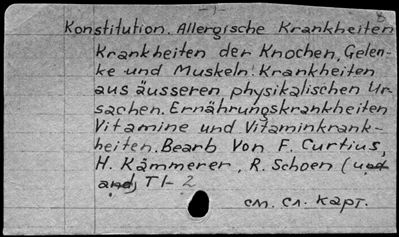 - 1 -
Konstitution. Allergische Krankheiten
Krankheiten der Knochen, Gelen-
ke und Muskeln. Krankheiten
aus äusseren physikalischen Ur-
sachen. Ernährungskrankheiten
Vitamine und Vitaminkrank-
heiten. Bearb Von F. Curtius,
H. Kämmerer, R. Schoen (und
and) Tl- 2
см. сл. карт.